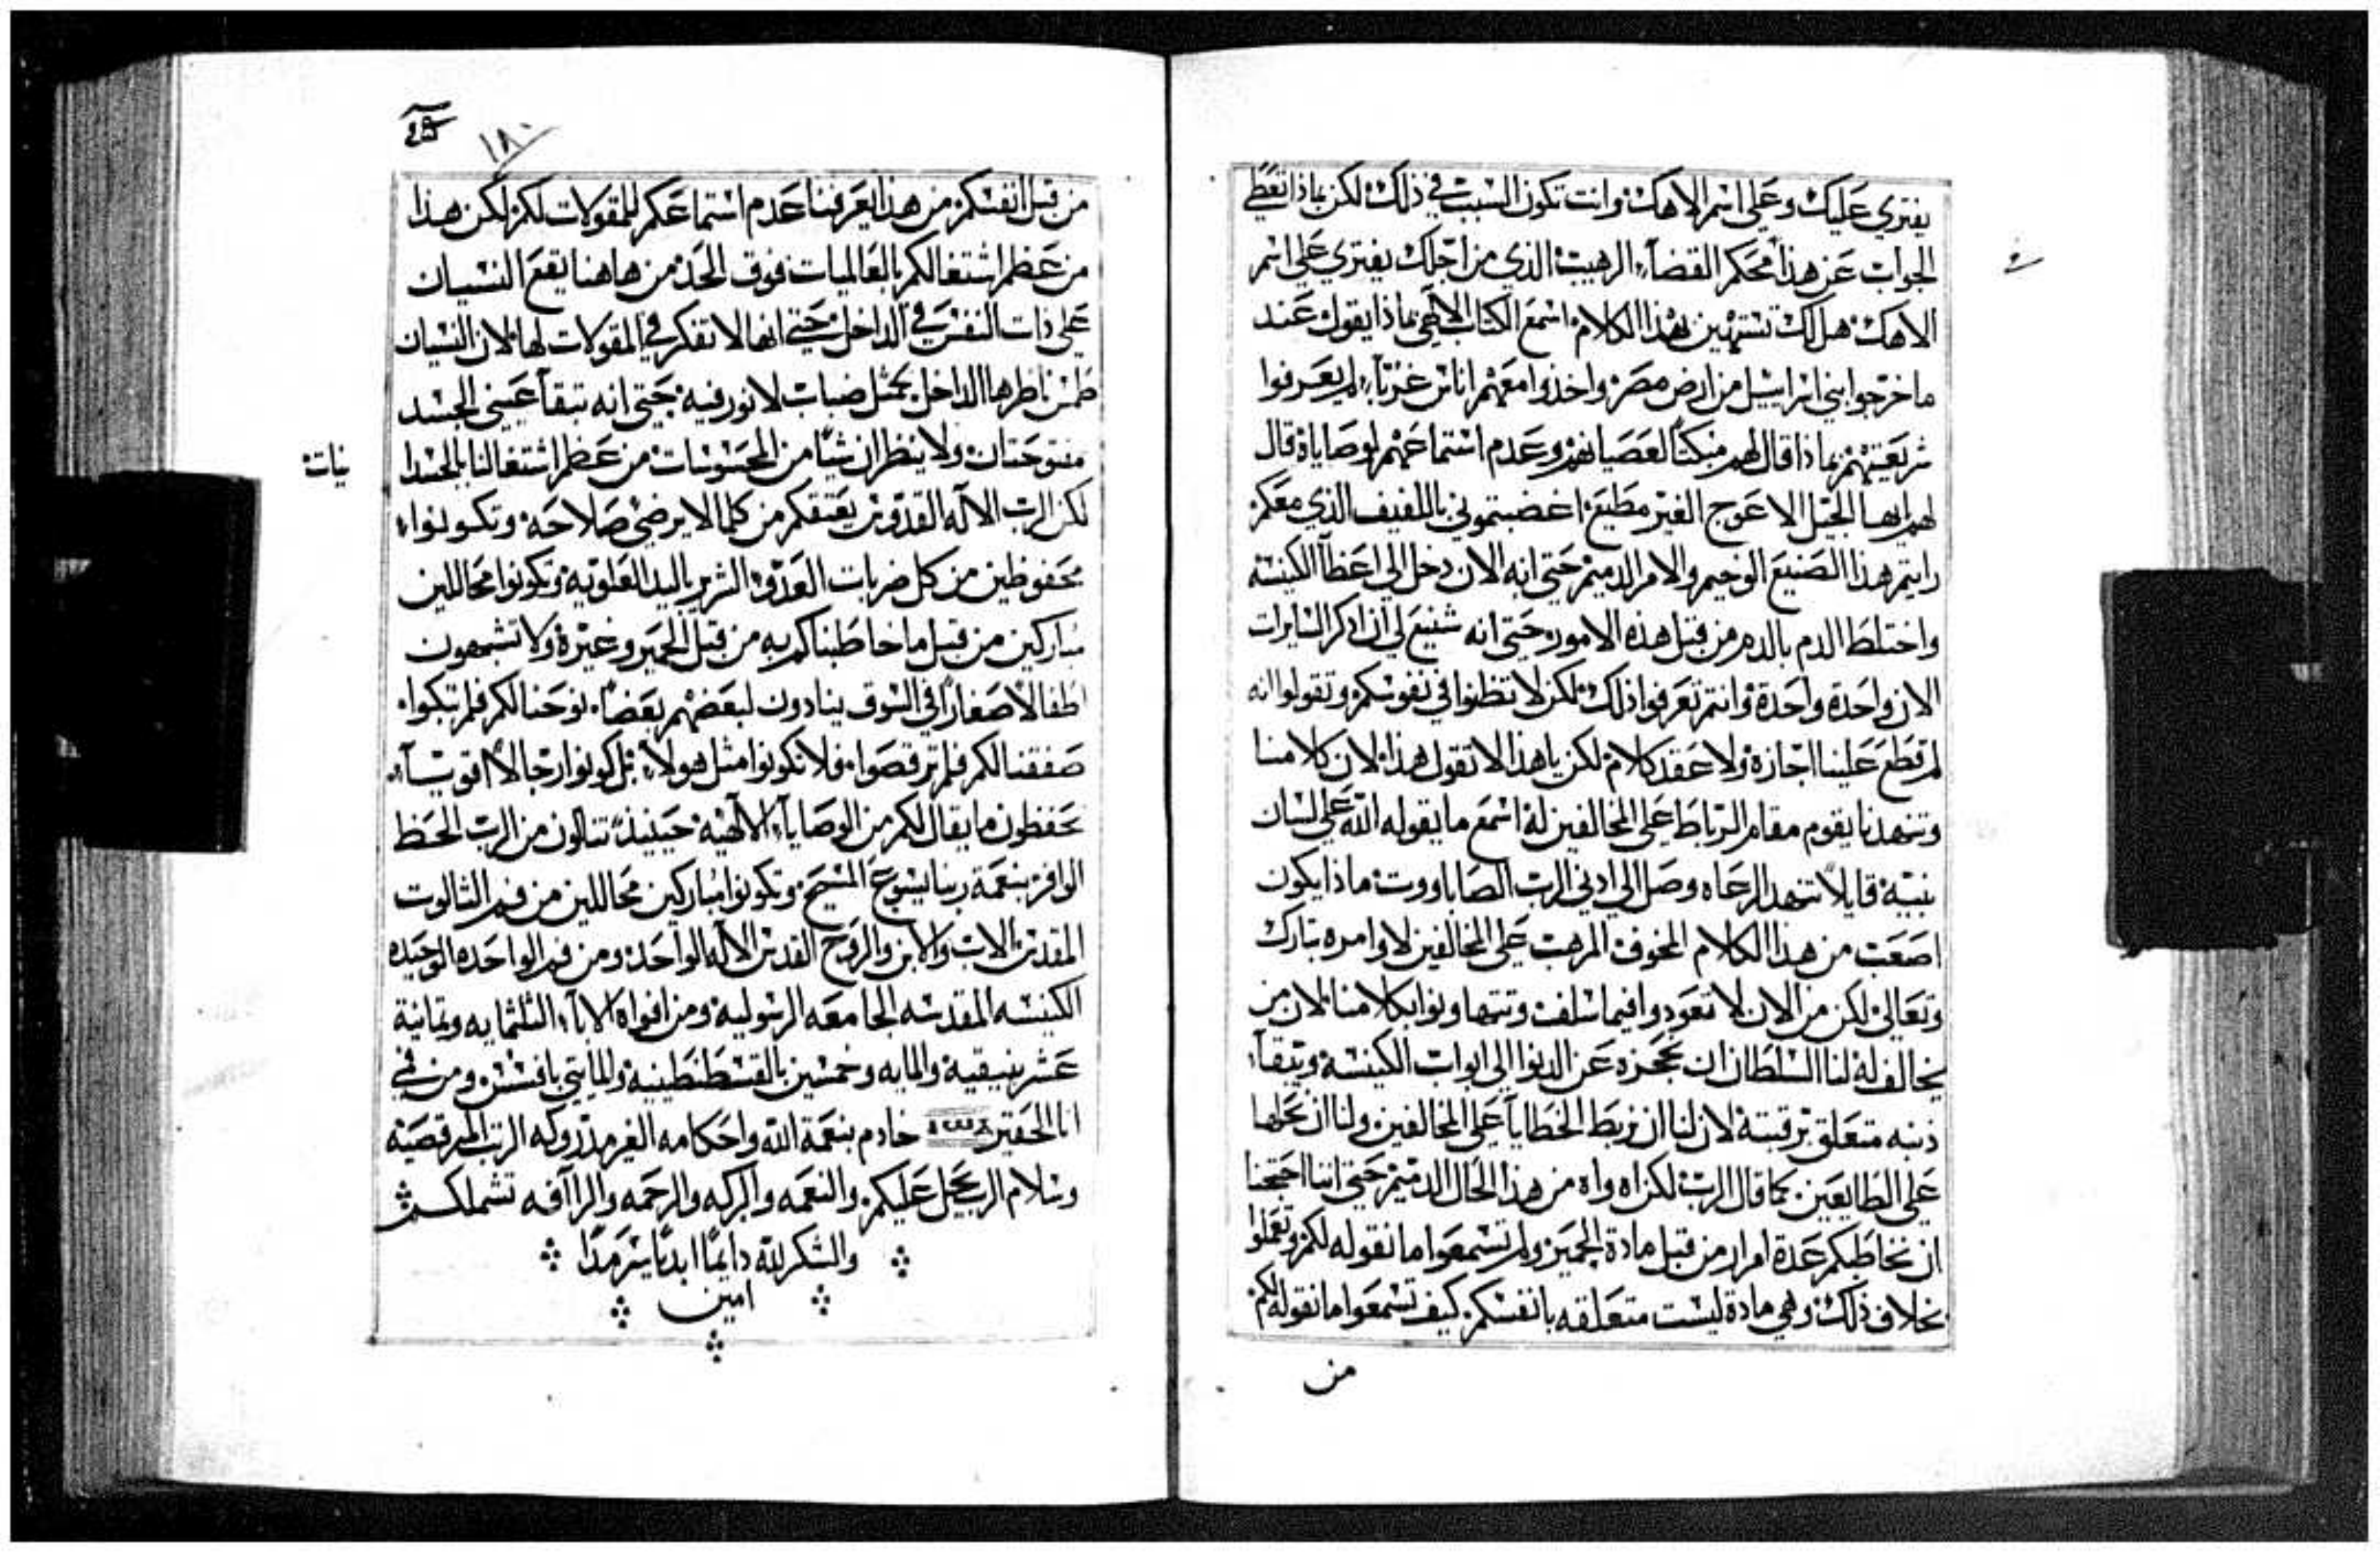 يفتري عليك وعلى اسم الاهك وانت تكون السبب في ذلك لكن بماذا تعطي
الجواب عن هذا محكم القضاء الرهيب الذي من اجلك يفتري على اسم
الاهك هل لك تستهين بهذا الكلام اسمع الكتاب الالاهي ماذا يقول عند
ما خرجوا بني اسراييل من ارض مصر واخذوا معهم اناس غربآء لم يعرفوا
شريعتهم بماذا قال لهم مبكتا لعصيانهم وعدم استماعهم لوصاياه قال
لهم ايها الجيل الاعوج الغير مطيع اغضبتموني باللفيف الذي معكم
رايتم هذا الصنيع الوخيم والامر الدميم حتي انه الان دخل الي اعطآ الكنيسة
واختلط الدم بالدم من قبل هذه الامور حتي انه شنيع لي ان اذكر السايرات
الان واحدة واحدة وانتم تعرفوا ذلك لكن لا تظنوا في نفوسكم وتقولوا انه
لم قطع علينا اجازة ولا عقد كلام لكن يا هذا لا تقول هذا لان كلامنا
وتنهدنا يقوم مقام الرباط على المخالفين له اسمع ما يقوله الله على لسان
نبيه قايلاً تنهد الرعاه وصل الي ادني الرب الصاباووت ماذا يكون
اصعب من هذا الكلام المخوف المرهب على المخالفين لاوامره تبارك
وتعالى لكن من الان لا تعودوا فيما سلف وتتهاونوا بكلامنا لان من
يخالف له لنا السلطان ان نحجزه عن الدنوا الى ابواب الكنيسة ويبقآ
ذنبه متعلق برقبته لان لنا ان نربط الخطايا على المخالفين ولنا ان نحلها
على الطايعين كما قال الرب لكن اه واه من هذا الحال الدميم حتي اننا احتجنا
ان نخاطبكم عدة امرار من قبل مادة الحمير ولم تسمعوا ما نقوله لكم وتعملوا
بخلاف ذلك وهي مادة ليست متعلقه بانفسكم كيف تسمعوا ما نقوله لكم
من
١٨٠
من قبل انفسكم من هذا يعرفنا عدم استماعكم للمقولات لكم لكن هذا
من عظم اشتغالكم بالعالميات فوق الحد من هاهنا يقع النسيان
على ذات النفس في الداخل حتي انها لا تفكر في المقولات لها لان النسيان
طمس ناظرها الداخل بمثل ضباب لا نور فيه حتي انه تبقآ عيني الجسد
مفتوحتان ولا ينظران شيًا من المحسوسات من عظم اشتغالنا بالجسدا
نيات
لكن الرب الاله القدوس يعتقكم من كلما لا يرضي صلاحه وتكونوا
محفوظين من كل ضربات العدو الشرير باليد العلوية وتكونوا محاللين
مباركين من قبل ما خاطبناكم به من قبل الحمير وغيرة ولا تشبهون
اطفالاً صغاراً في السوق ينادون لبعضهم بعضاً نوحنا لكم فلم تبكوا
صفقنا لكم فلم ترقصوا فلا تكونوا مثل هولآء بل كونوا رجالاً اقويآء
تحفظون ما يقال لكم من الوصايآ الالهية حينيذ تنالون من الرب الحظ
الوافر بنعمة ربنا يسوع المسيح وتكونوا مباركين محاللين من فم الثالوت
المقدس الاب والابن والروح القدس الاله الواحد ومن فم الواحده الوحيده
الكنيسه المقدسه الجامعه الرسولية ومن افواه الاباء الثلثمايه وثمانية
عشر بنيقية والمايه وخمسين بالقسطنطينية والمايتي بافسس ومن في
انا الحقير خادم بنعمة الله واحكامه الغير مدروكه الرتب المرقصية
وسلام الرب يحل عليكم والنعمه والبركه والرحمه والراآفه تشملكم
والشكر لله دايمًا ابديًا سرمدًا
امين